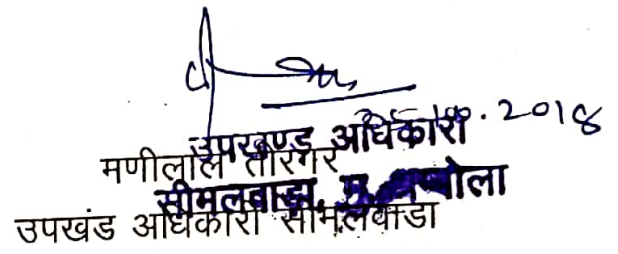 2018
उपखण्ड अधिकारी
मणीलाल तीरगर
सीमलवाडा, मु. पोला
उपखंड अधिकारी सीमलवाडा